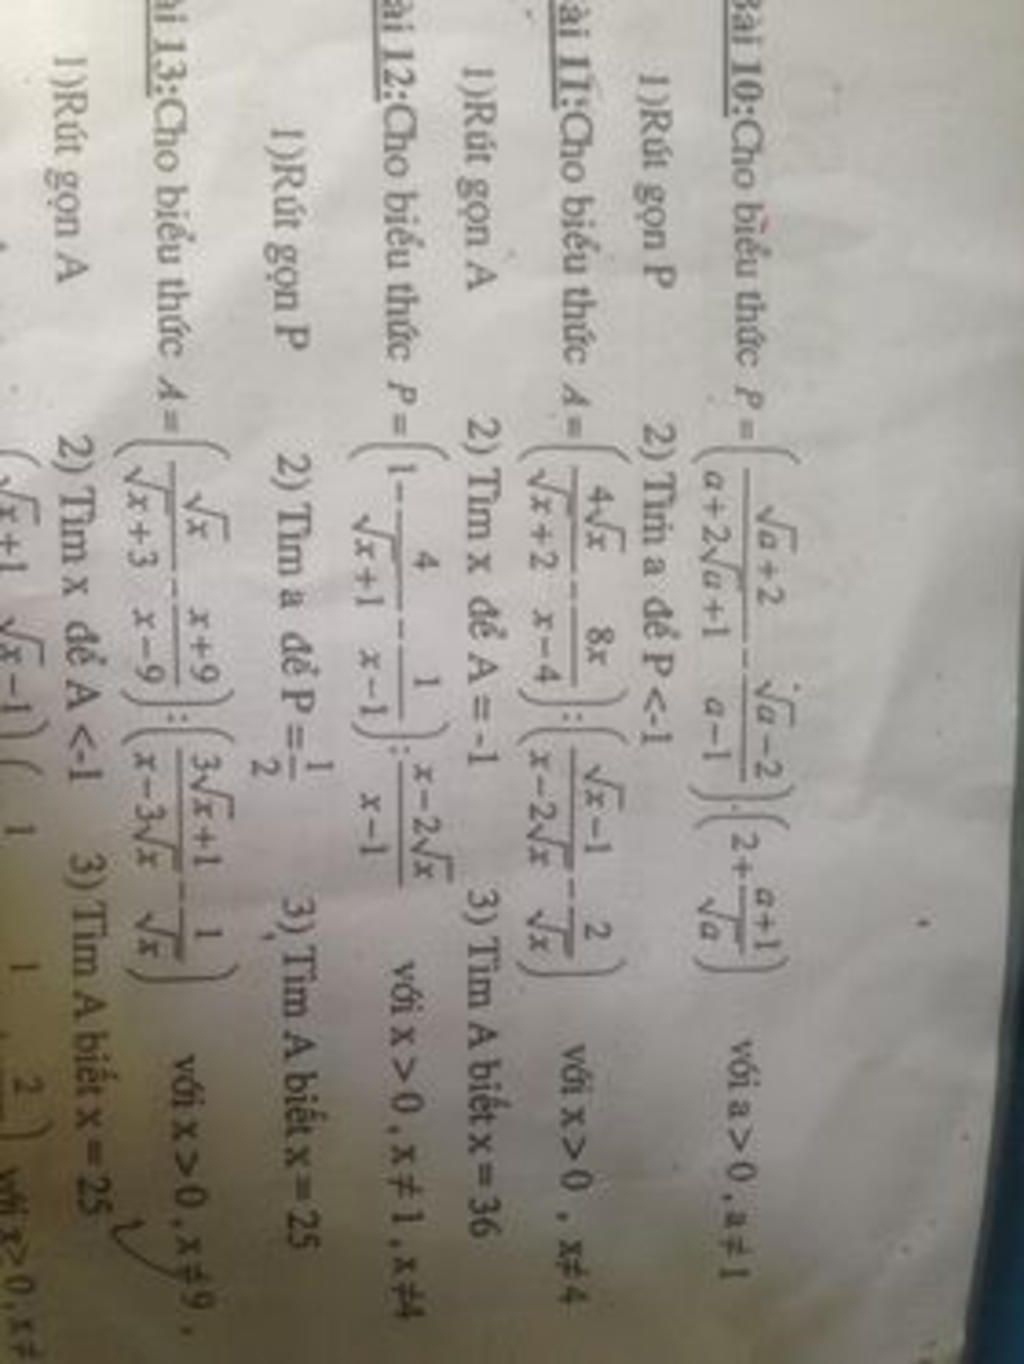 Bài 10:Cho biểu thức P = ( (√a+2)/(a+2√a+1) - (√a-2)/(a-1) ).( 2 + (a+1)/√a ) với a > 0 , a ≠ 1
1)Rút gọn P 2) Tìm a để P <-1
ài 11:Cho biểu thức A = ( 4√x/(√x+2) - 8x/(x-4) ):( (√x-1)/(x-2√x) - 2/√x ) với x > 0 , x≠ 4
1)Rút gọn A 2) Tìm x để A = -1 3) Tìm A biết x = 36
ài 12:Cho biểu thức P = ( 1 - 4/(√x+1) - 1/(x-1) ): (x-2√x)/(x-1) với x > 0 , x ≠ 1 , x ≠4
1)Rút gọn P 2) Tìm a để P = 1/2 3) Tìm A biết x = 25
ài 13:Cho biểu thức A = ( √x/(√x+3) - (x+9)/(x-9) ):( (3√x+1)/(x-3√x) - 1/√x ) với x > 0 , x ≠ 9 ,
1)Rút gọn A 2) Tìm x để A <-1 3) Tìm A biết x = 25
( √x+1 √x-1 ) ( 1 1 2 ) với x > 0 , x ≠